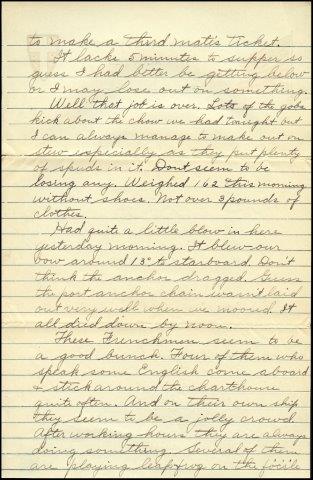 to make a third mate's ticket.
It lacks 5 minutes to supper so
guess I had better be getting below
or I may lose out on something.
Well that job is over. Lots of the gobs
kick about the chow we had tonight but
I can always manage to make out on
stew especially as they put plenty
of spuds in it. Dont seem to be
losing any. Weighed 162 this morning
without shoes. Not over 3 pounds of
clothes.
Had quite a little blow in here
yesterday morning. It blew our
bow around 13° to starboard. Don't
think the anchor dragged. Guess
the port anchor chain wasn't laid
out very well when we moored. It
all died down by noon.
These Frenchmen seem to be
a good bunch. Four of them who
speak some English come aboard
& stick around the charthouse
quite often. And on their own ship
they seem to be a jolly crowd.
After working hours they are always
doing something. Several of them
are playing leapfrog on the